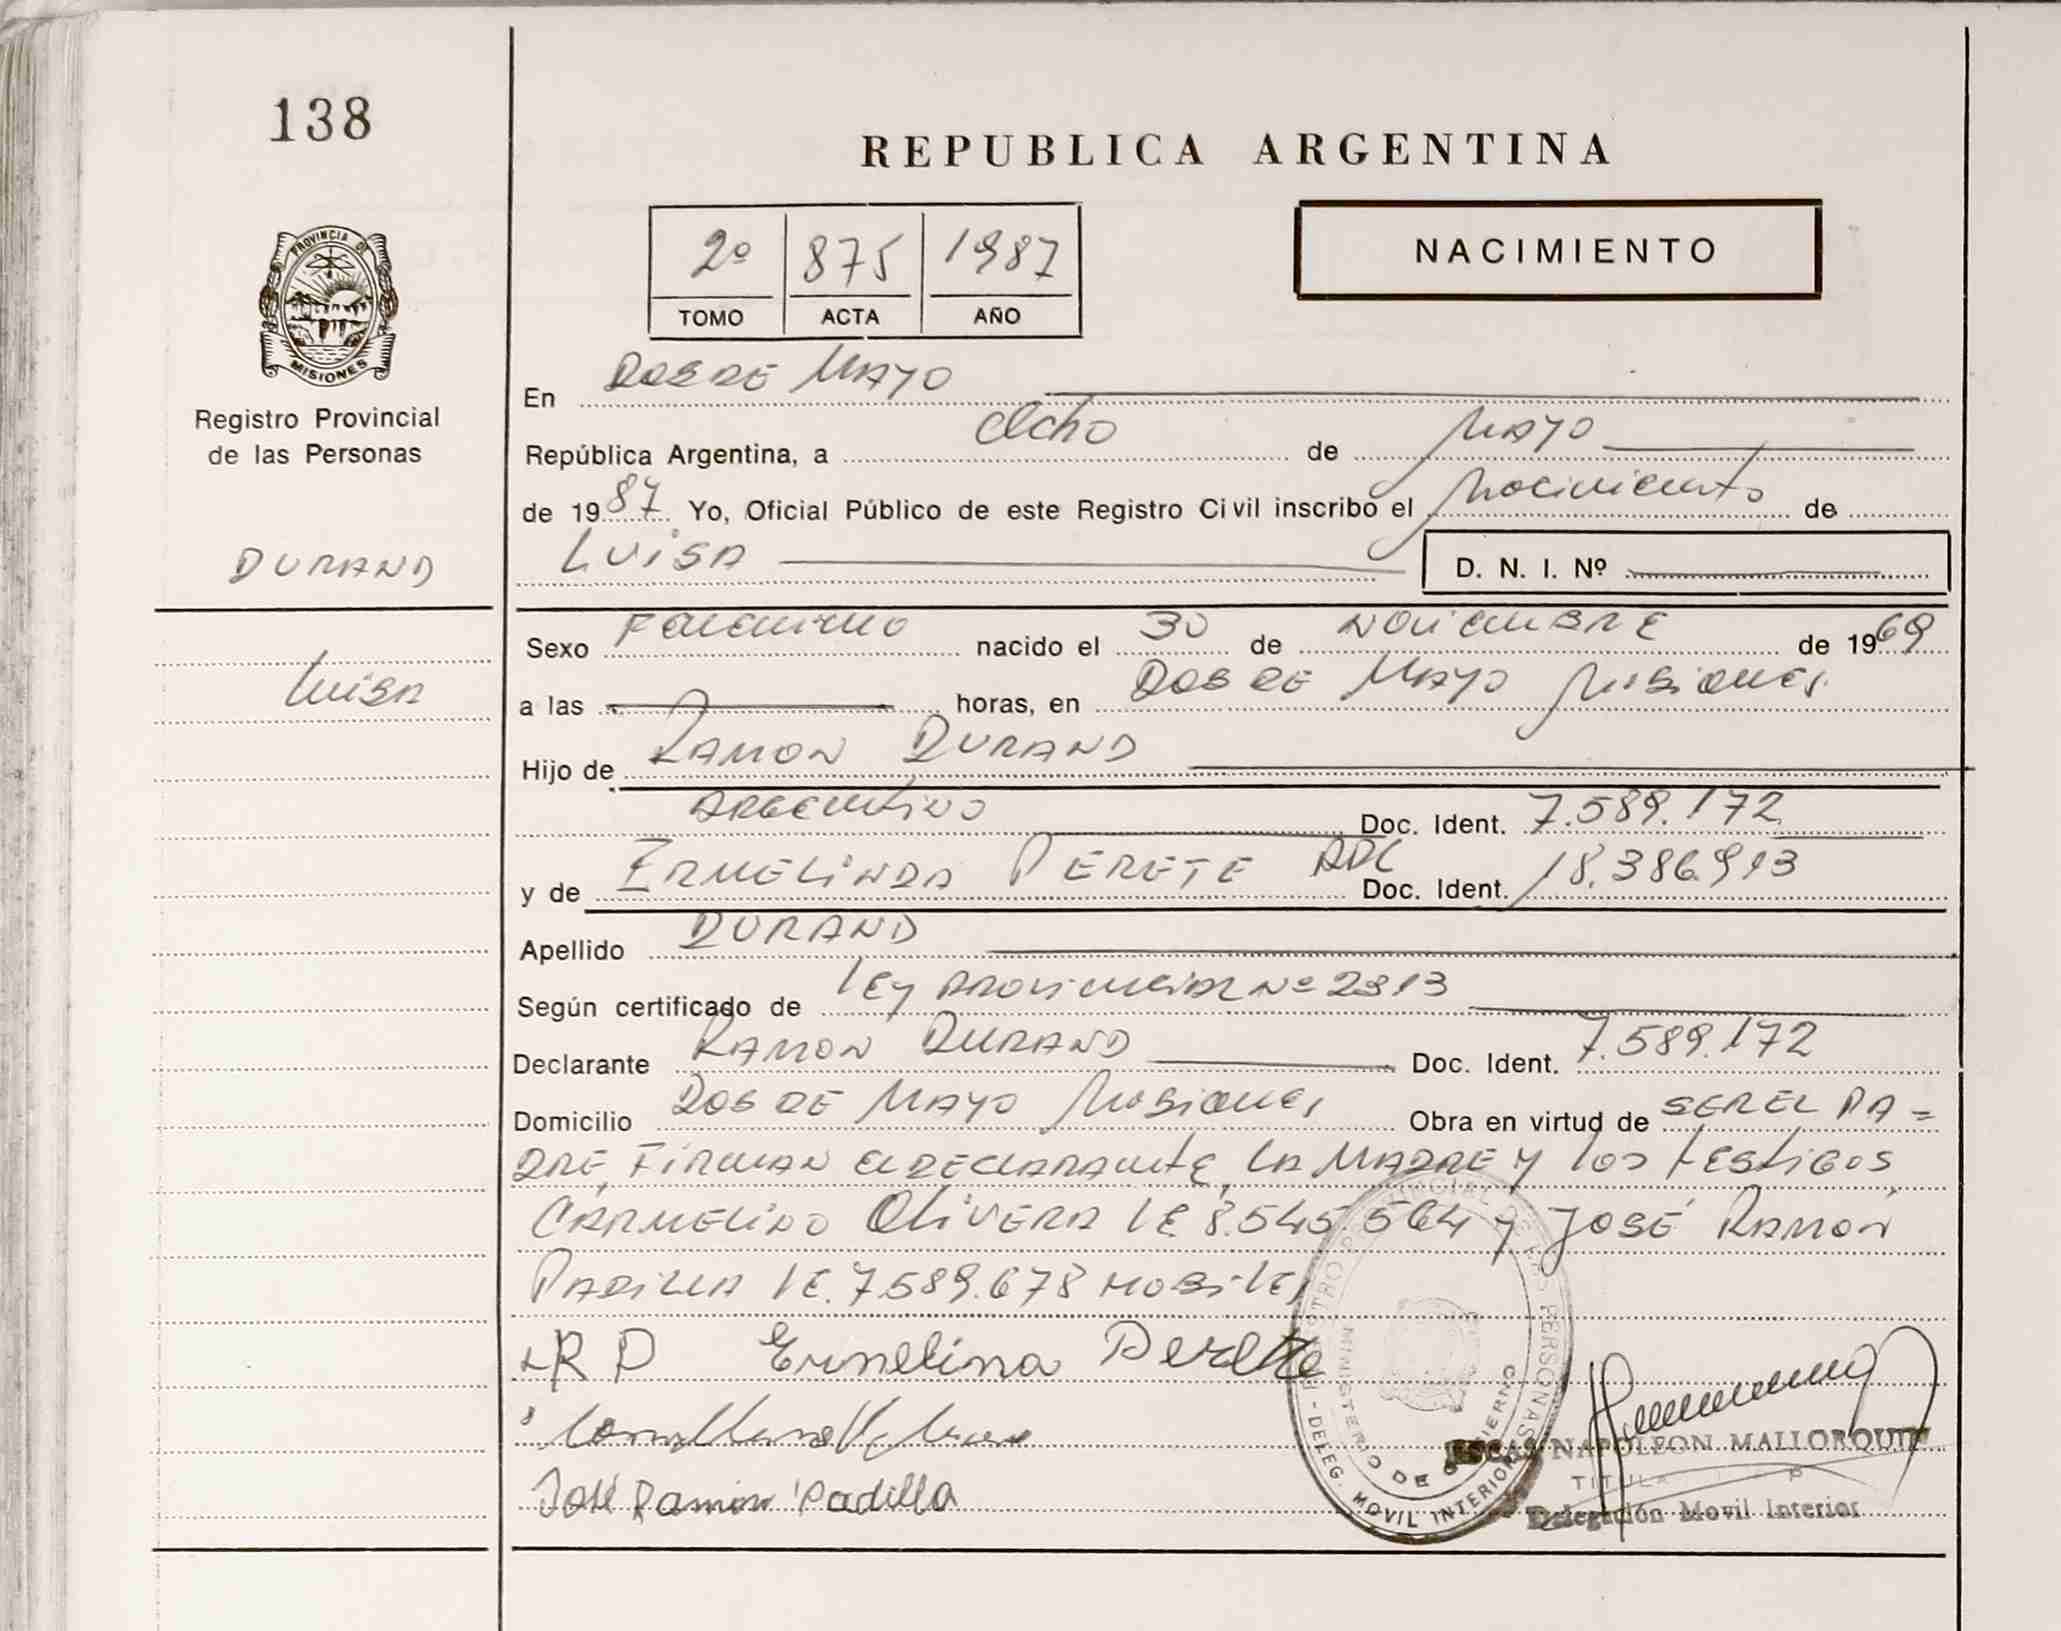 138
REPUBLICA ARGENTINA
2º 875 1987
TOMO ACTA AÑO
NACIMIENTO
PROVINCIA DE
MISIONES
Registro Provincial
de las Personas
DURAND
Luisa
En DOS DE MAYO
República Argentina, a Ocho de MAYO
de 1987 Yo, Oficial Público de este Registro Civil inscribo el Nacimiento de
LUISA D. N. I. Nº
Sexo Femenino nacido el 30 de NOViembre de 1969
a las horas, en DOS DE MAYO Misiones
Hijo de RAMON DURAND
ARGENtiNO Doc. Ident. 7.589.172
y de ERMELINDA PERETE ADC Doc. Ident. 18.386.913
Apellido DURAND
Según certificado de LEY PROViNCIAL Nº 2313
Declarante RAMON DURAND Doc. Ident. 7.589.172
Domicilio DOS DE MAYO Misiones Obra en virtud de SER EL PA=
DRE, FiRMAN el DECLARANtE, LA MADRE Y los tEStiGOS
CARMELiNO OliVERA LE 8.545.564 y JOSÉ RAMON
PADiLLA LE. 7.589.678 HOBiLES
RP Ermelina Perette
José Ramon Padilla
REGISTRO PROVINCIAL DE LAS PERSONAS
MINISTERIO DE GOBIERNO
- DELEG. MOVIL INTERIOR
NAPOLEON MALLORQUIN
Delegación Movil Interior